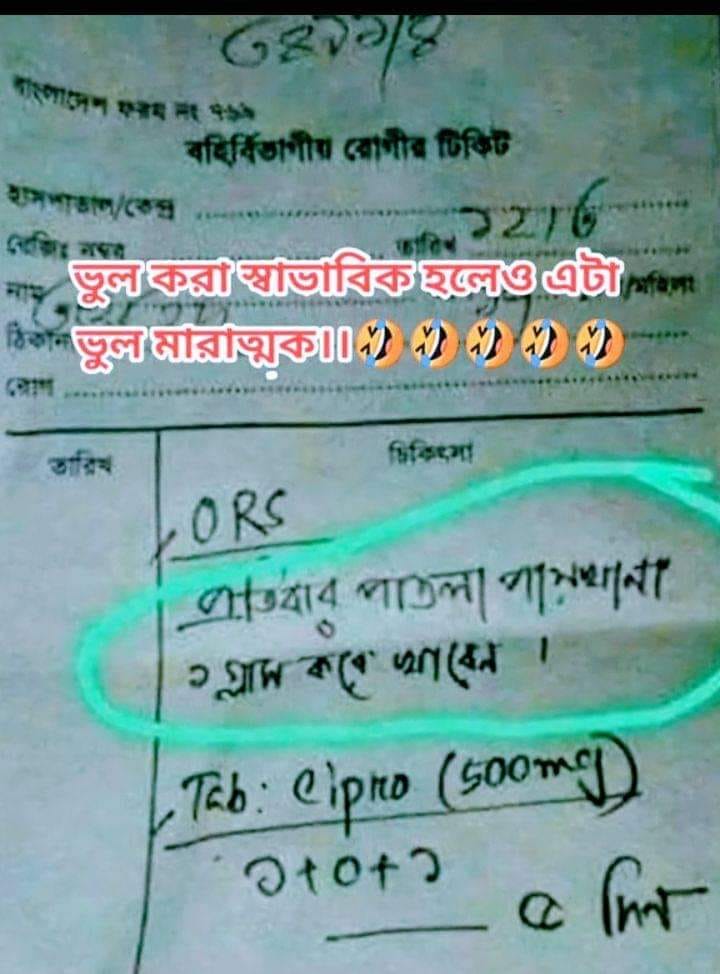 বাংলাদেশ ফরম নং ৭৬৯
বহির্বিভাগীয় রোগীর টিকিট
হাসপাতাল/কেন্দ্র
রেজিঃ নম্বর তারিখ
নাম /মহিলা
ভুল করা স্বাভাবিক হলেও এটা
ঠিকানা
ভুল মারাত্মক।।🤣🤣🤣🤣🤣
রোগ
তারিখ চিকিৎসা
ORS
প্রতিবার পাতলা পায়খানা
১ গ্লাস করে খাবেন ।
Tab: Cipro (500mg)
১+০+১
৫ দিন